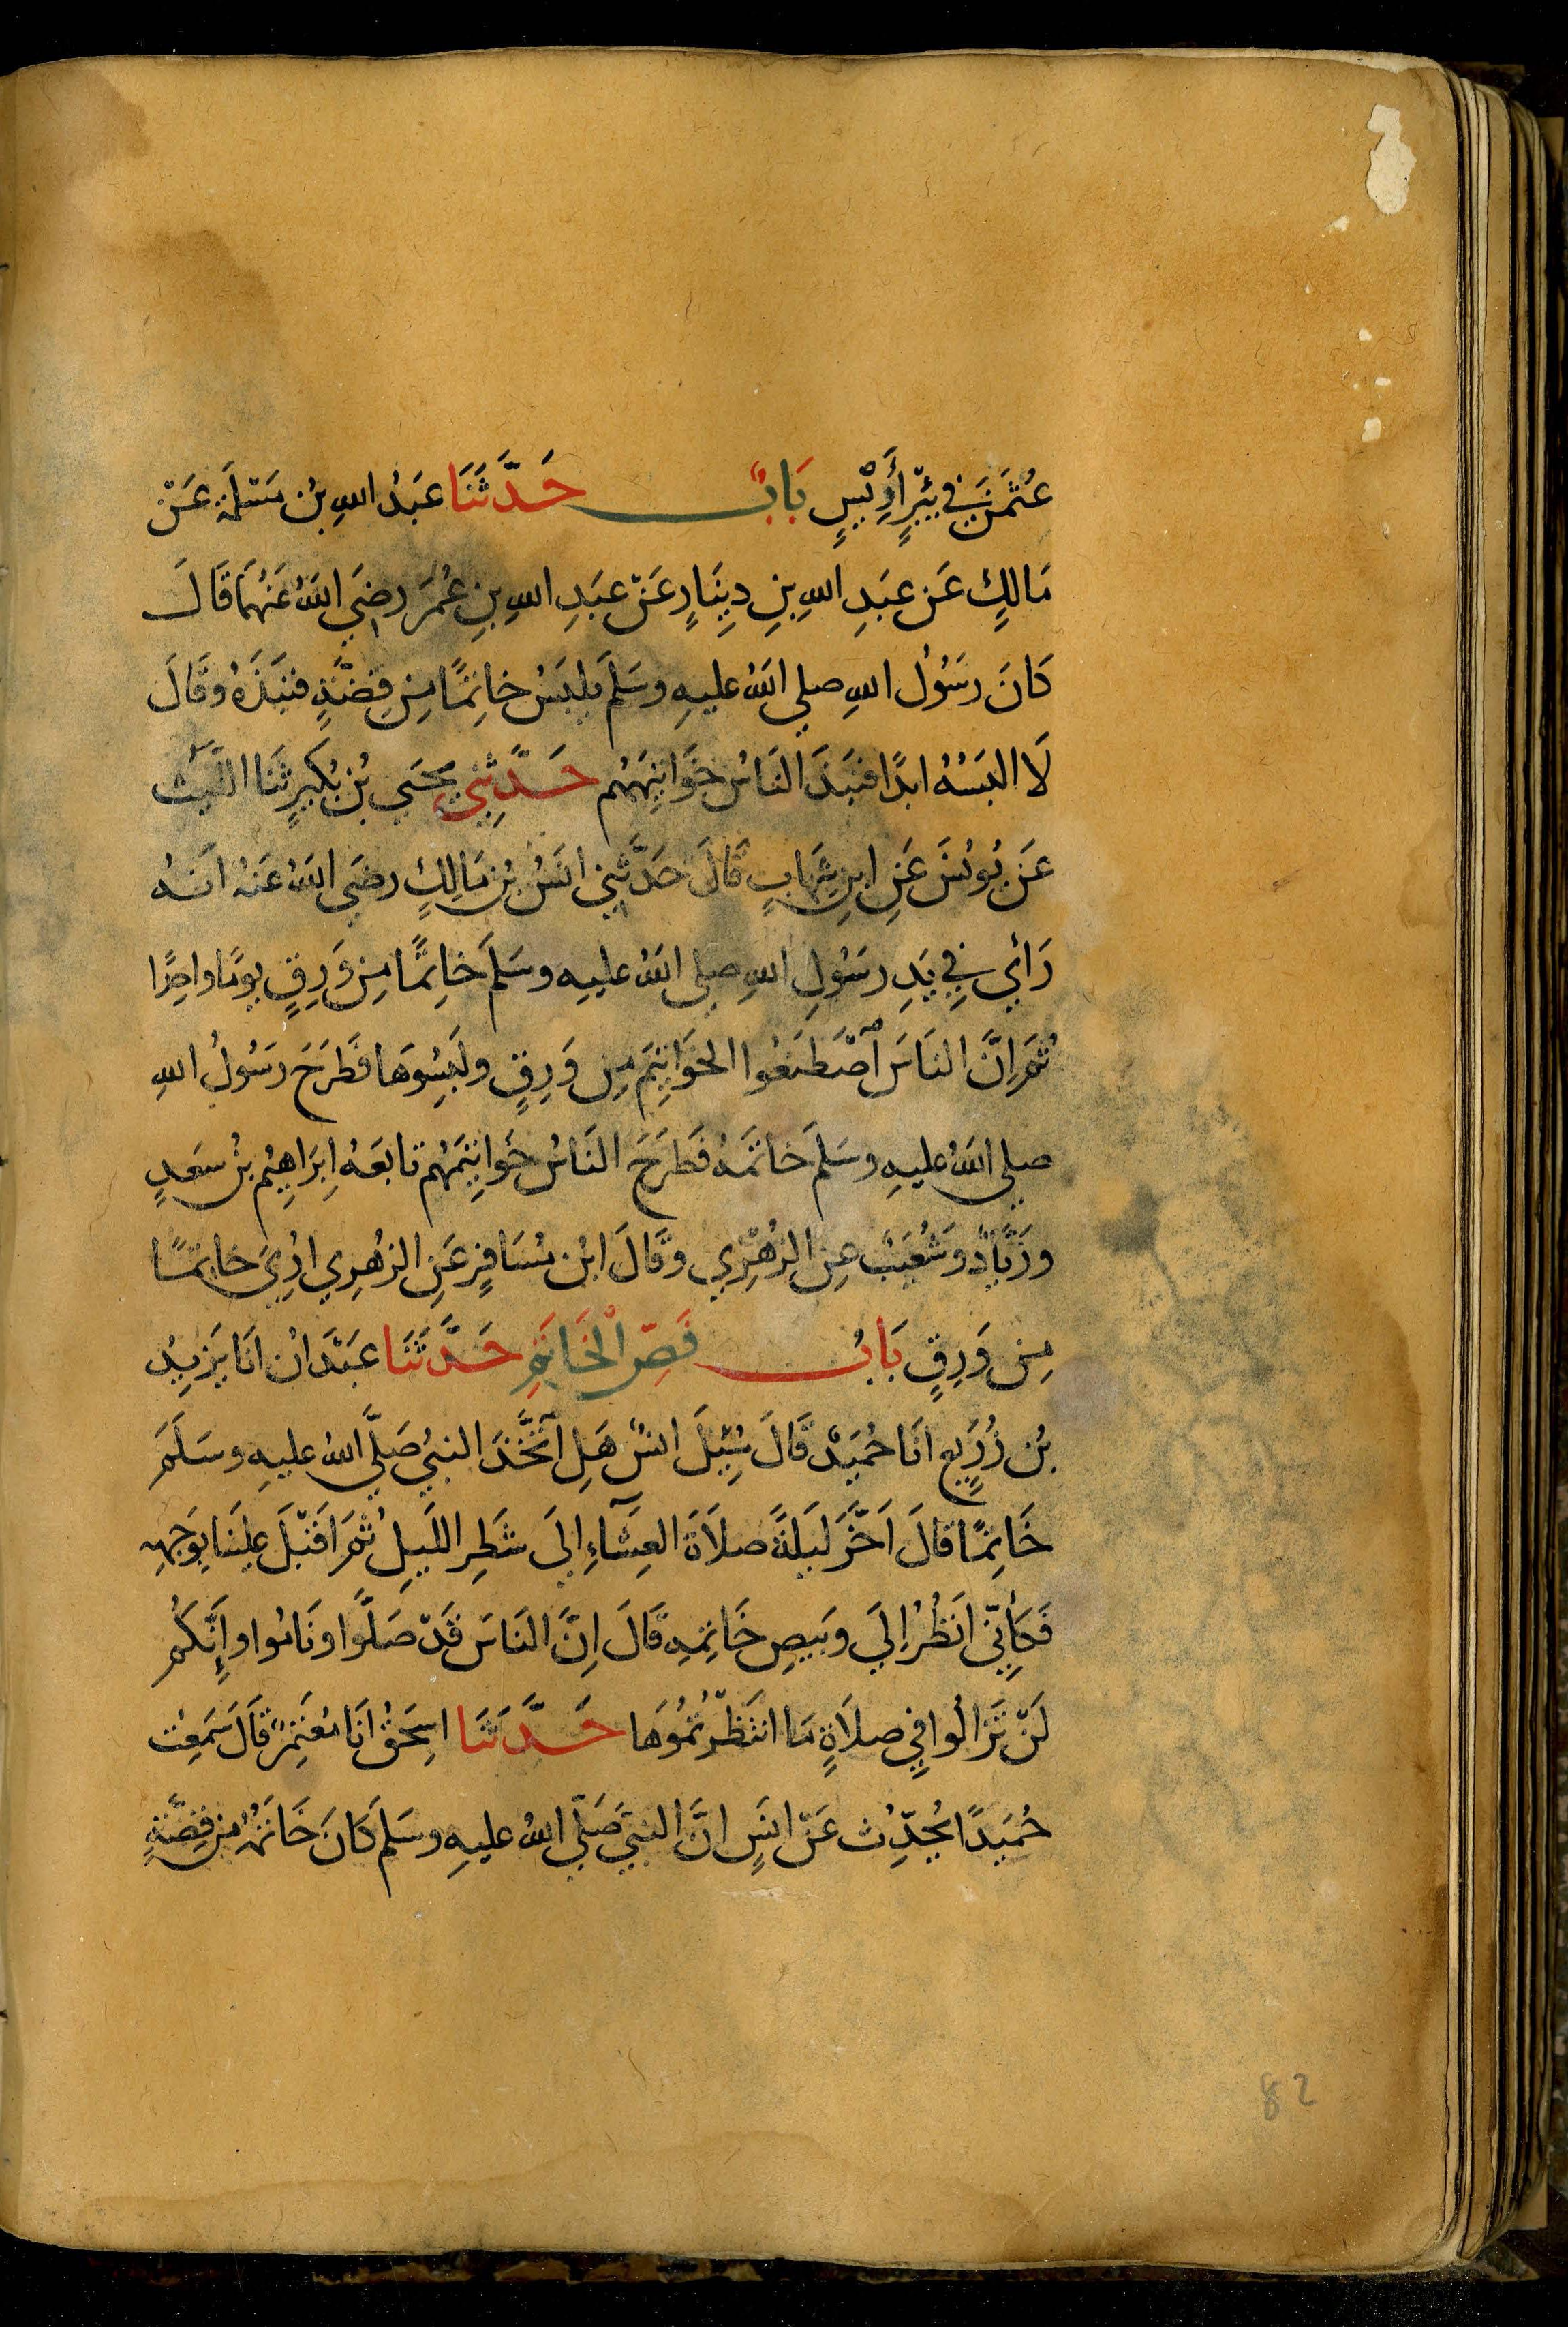 عُثْمَنَ فِي بِيْرِ أَرِيْسٍ بَابٌ حَدَّثَنَا عَبْدُ اللهِ بْنُ مَسْلَمَةَ عَنْ
مَالِكٍ عَن عَبْدِ اللهِ بنِ دِينَارٍ عَنْ عَبْدِ اللهِ بنِ عُمَرَ رضِيَ اللهُ عَنْهُمَا قَالَ
كَانَ رَسُوْلُ اللهِ صلى اللهُ عليهِ وسَلمَ يلبَسُ خاتِمًا مِن فِضَّةٍ فنبَذَهُ وقَالَ
لَا البَسُهُ ابدًا فنبَذَ النَاسُ خَوَاتِيْمَهُم حَدَّثَنِي يحيَى بْن بُكَيرٍ ثَنَا اللَّيْثُ
عَن يُونُسَ عَنِ ابنِ شِهَابٍ قَالَ حَدَّثَنِي انَسُ بْن مَالِكٍ رضيَ اللهُ عَنهُ انهُ
رَأي فِي يَدِ رسُولِ اللهِ صلى اللهُ عليهِ وسَلمَ خاتِمًا مِن وَرِقٍ يومًا واحِدًا
ثُمَّ اِنَّ النَاسَ اصْطَنَعُوا الخوَاتِيمَ مِن وَرِقٍ ولَبِسُوهَا فَطَرَحَ رَسُولُ اللهِ
صلى اللهُ عليهِ وسَلمَ خاتَمَهُ فَطَرَحَ النَاسُ خَوَاتِيمَهُم تابَعَهُ اِبرَاهِيْم بنُ سعَدٍ
وزيَادٌ وشُعَيْبٌ عنِ الزُهْرِي وقَالَ ابْن مُسَافِرٍ عَنِ الزهْرِي ارُيَ خاتِمًا
مِن وَرِقٍ بَابُ فَصِّ الْخَاتَمِ حَدَّثَنَا عَبْدَان انَا يَزيدُ
بْن زُرَيعٍ انَا حُمَيْدٌ قَالَ سُئِلَ انسٌ هَلِ اتَّخَذَ النبيُ صَلَّى اللهُ عليهِ وسَلَمَ
خَاتِمًا قالَ اَخَّرَ ليَلةً صلاَةَ العِشَاءِ إلى شَطِرِ اللَيلِ ثُمَّ اَقْبَلَ علينَا بوَجهِهِ
فَكأَنِّي انظُرُ اِلَي وبيصِ خَاتِمهِ قَالَ اِنَّ النَاسَ قَدْ صَلَّوا ونَامُوا وإِنَّكُم
لَنْ تَزَالُوا فِي صلاَةٍ مَا انتظَرْتُمُوهَا حَدَّثَنَا اسحَقُ انَا مُعْتَمِرٌ قَالَ سَمعِتُ
حُمَيدًا يُحدِّث عَنْ انَسٍ انَّ النبيَّ صَلّى اللهُ عليهِ وسَلمَ كَانَ خَاتَمُهُ مِن فِضَّةٍ
82